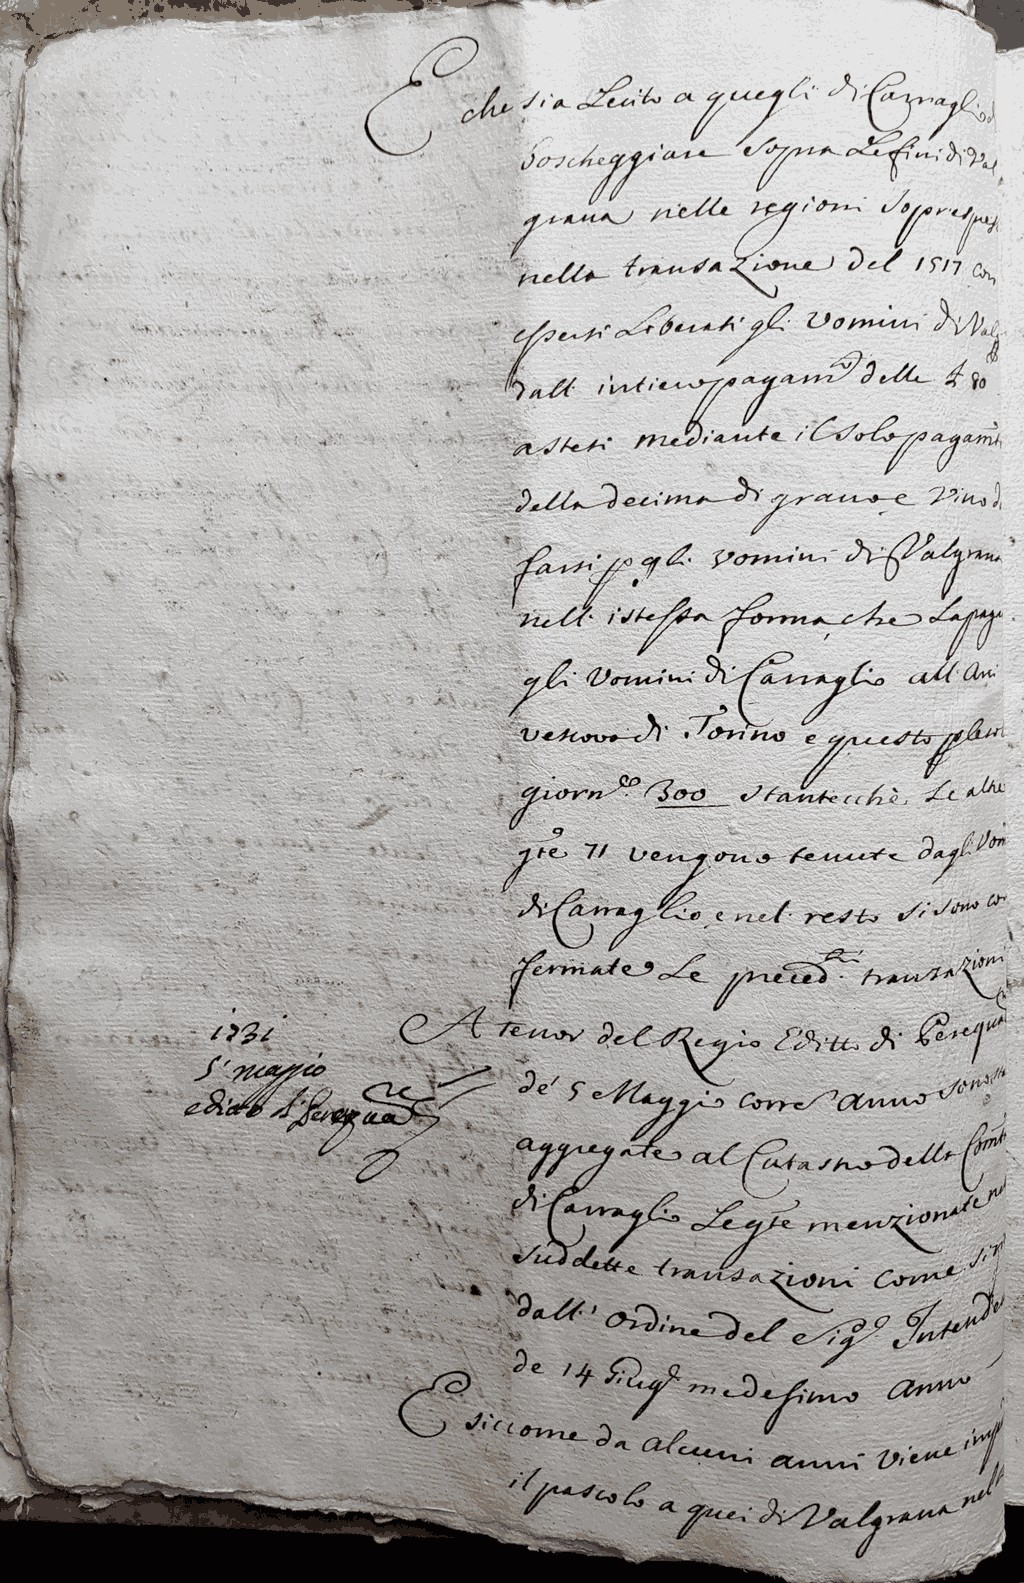 E che sia Lecito a quegli di Carraglio
boscheggiare sopra Le fini di Val
grana nelle regioni sopraespres
nella transazione del 1517 con
essersi Liberati gli Vomini di Valg
dall' intiero pagam.to delle £ 80
astesi mediante il solo pagam.to
della decima di grano e Vino d
farsi p gli vomini di Valgrana
nell' istessa forma che La paga
gli Vomini di Carraglio all' Arci
vescovo di Torino e questo p le sole
giorn.e 300 stantecchè Le altre
g.te 71 vengono tenute dagli Vom
di Carraglio, e nel resto si sono con
fermate Le preced.ti transazioni
A tenor del Regio Editto di Perequa
1731
5 maggio
edito di Perequa.ne
de' 5 Maggio corr.e anno sono sta
aggregate al Catastro della Com.tà
di Carraglio Le g.te menzionate ne
suddette transazioni come si
dall' ordine del Sig.r Intende
de 14 Giug.o medesimo anno
E siccome da alcuni anni viene imp
il pascolo a quei di Valgrana nell